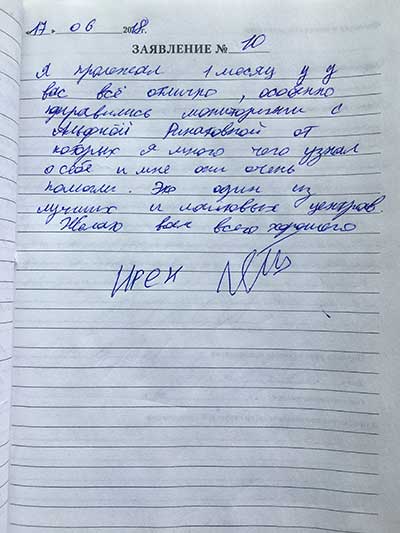 17. 06 2018г.
ЗАЯВЛЕНИЕ № 10
Я пролежал 1 месяц у у
вас всё отлично, особенно
нравились мониторинги с
Ринатовной от
которых я много чего узнал
о себе и мне они очень
помогли. Это один из
лучших и топовых центров.
Желаю вам всего хорошего
Ирек